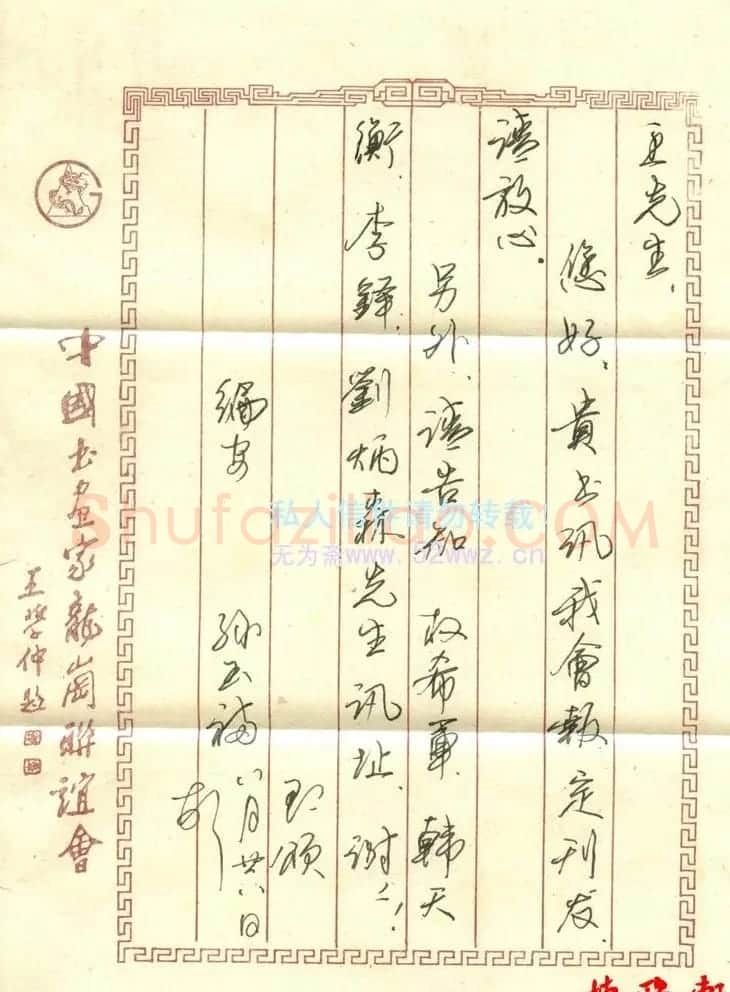 王先生、
您好、貴书讯我會報定刊发、
请放心.
另外、请告知 权希军、韩天
衡、李鐸、劉炳森先生讯址、谢〻!
即颂
编安
孙玉福 八月廿八日
中國书畫家龍崗聯誼會
王學仲题
Shufaziliao.COM
私人信件请勿转载!
无为斋www.52wwz.cn